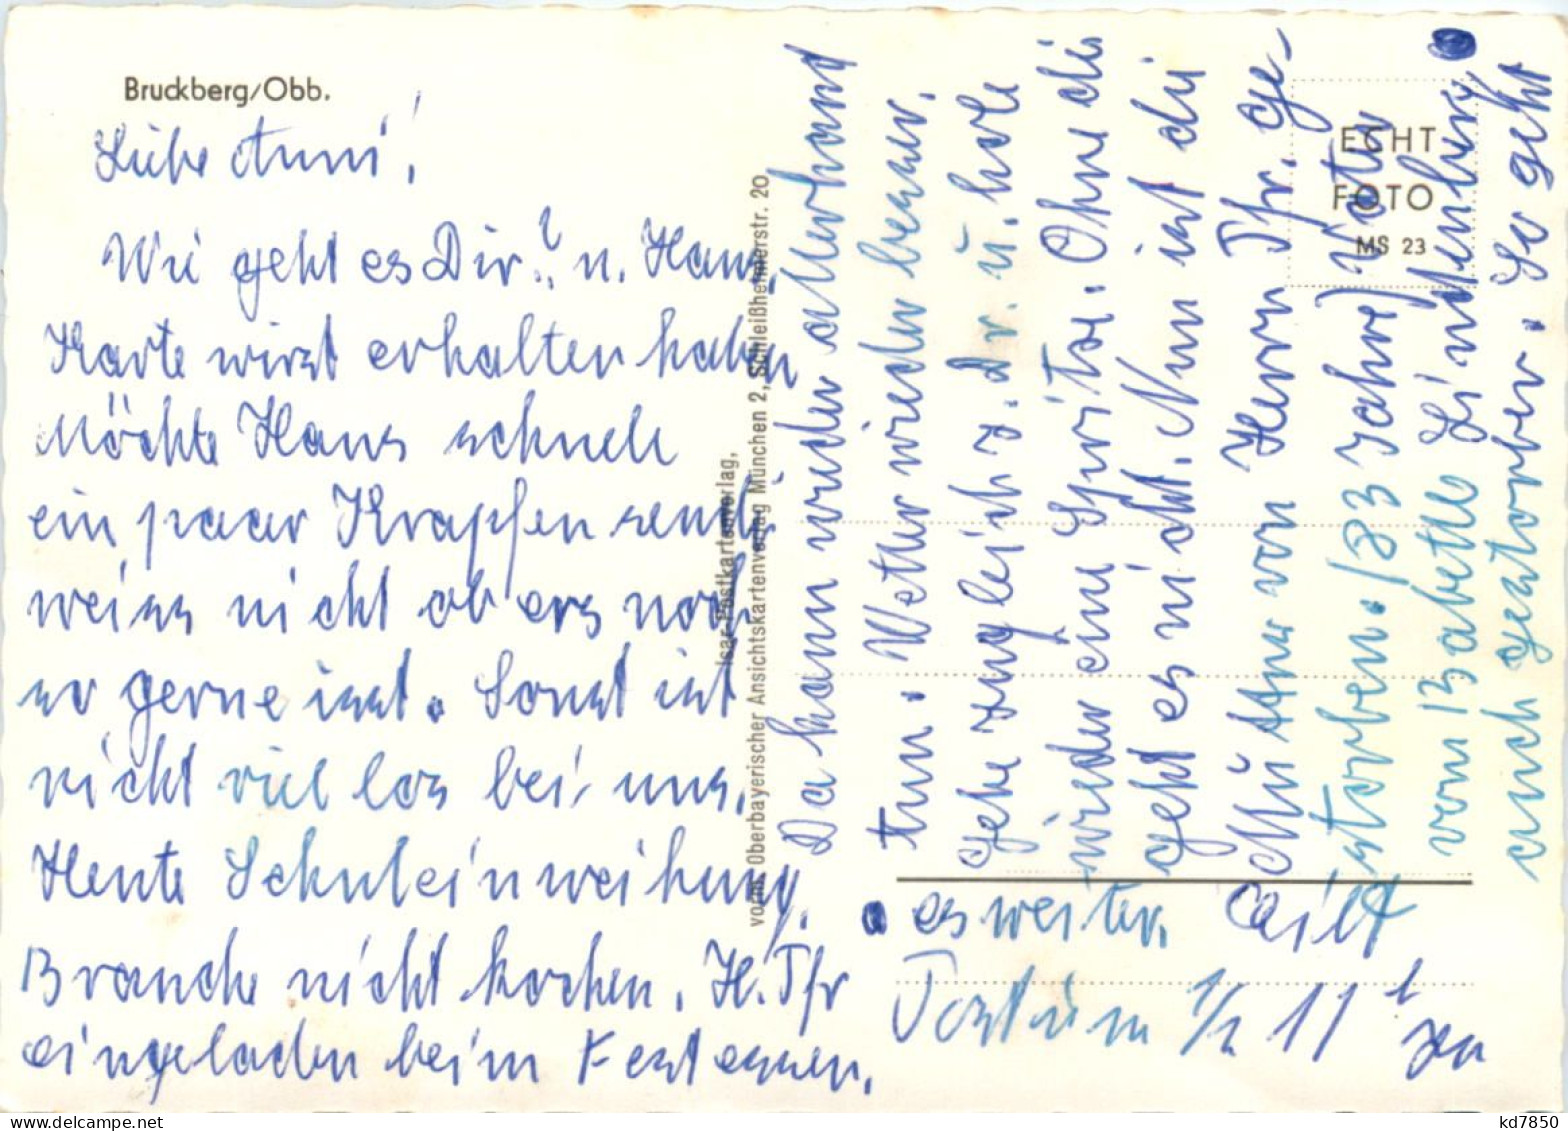 Bruckberg/Obb.
Liebe Anni!
Wie geht es Dir? u. Hans.
Karte wirst erhalten haben
Möchte Hans schnell
ein paar Krapfen senden
weiss nicht ob ers noch
so gerne isst. Sonst ist
nicht viel los bei uns.
Heute Schuleinweihung.
Brauche nicht kochen. H. Pfr
eingeladen beim Festessen.
Isar-Postkartenverlag,
vorm. Oberbayerischer Ansichtskartenverlag München 2, Schleißheimerstr. 20
ECHT
FOTO
MS 23
Da kann wieder allerhand
tun. Wetter wieder besser.
Gehe zugleich z. Dr. u. hole
wieder eine Spritze. Ohne die
geht es nicht. Nun ist die
von Herrn Pfr. ge-
storben. (83 Jahre) Vater
von Babette
auch gestorben. So geht
es weiter. Eilt
Postüm 1/2 11